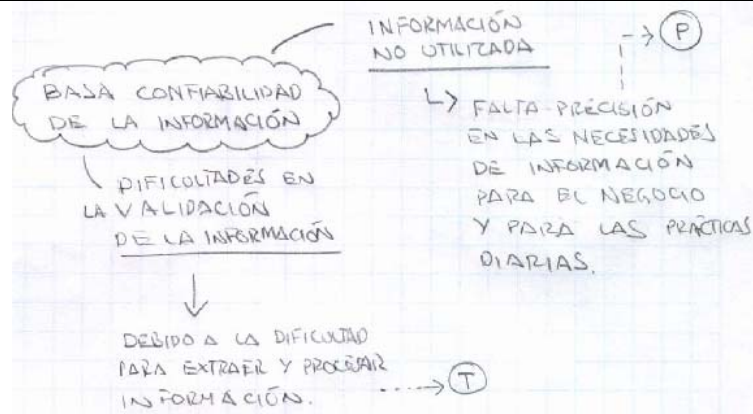 INFORMACIÓN
NO UTILIZADA
P
BAJA CONFIABILIDAD
DE LA INFORMACIÓN
FALTA PRECISIÓN
EN LAS NECESIDADES
DE INFORMACIÓN
PARA EL NEGOCIO
Y PARA LAS PRÁCTICAS
DIARIAS.
DIFICULTADES EN
LA VALIDACIÓN
DE LA INFORMACIÓN
DEBIDO A LA DIFICULTAD
PARA EXTRAER Y PROCESAR
INFORMACIÓN.
T